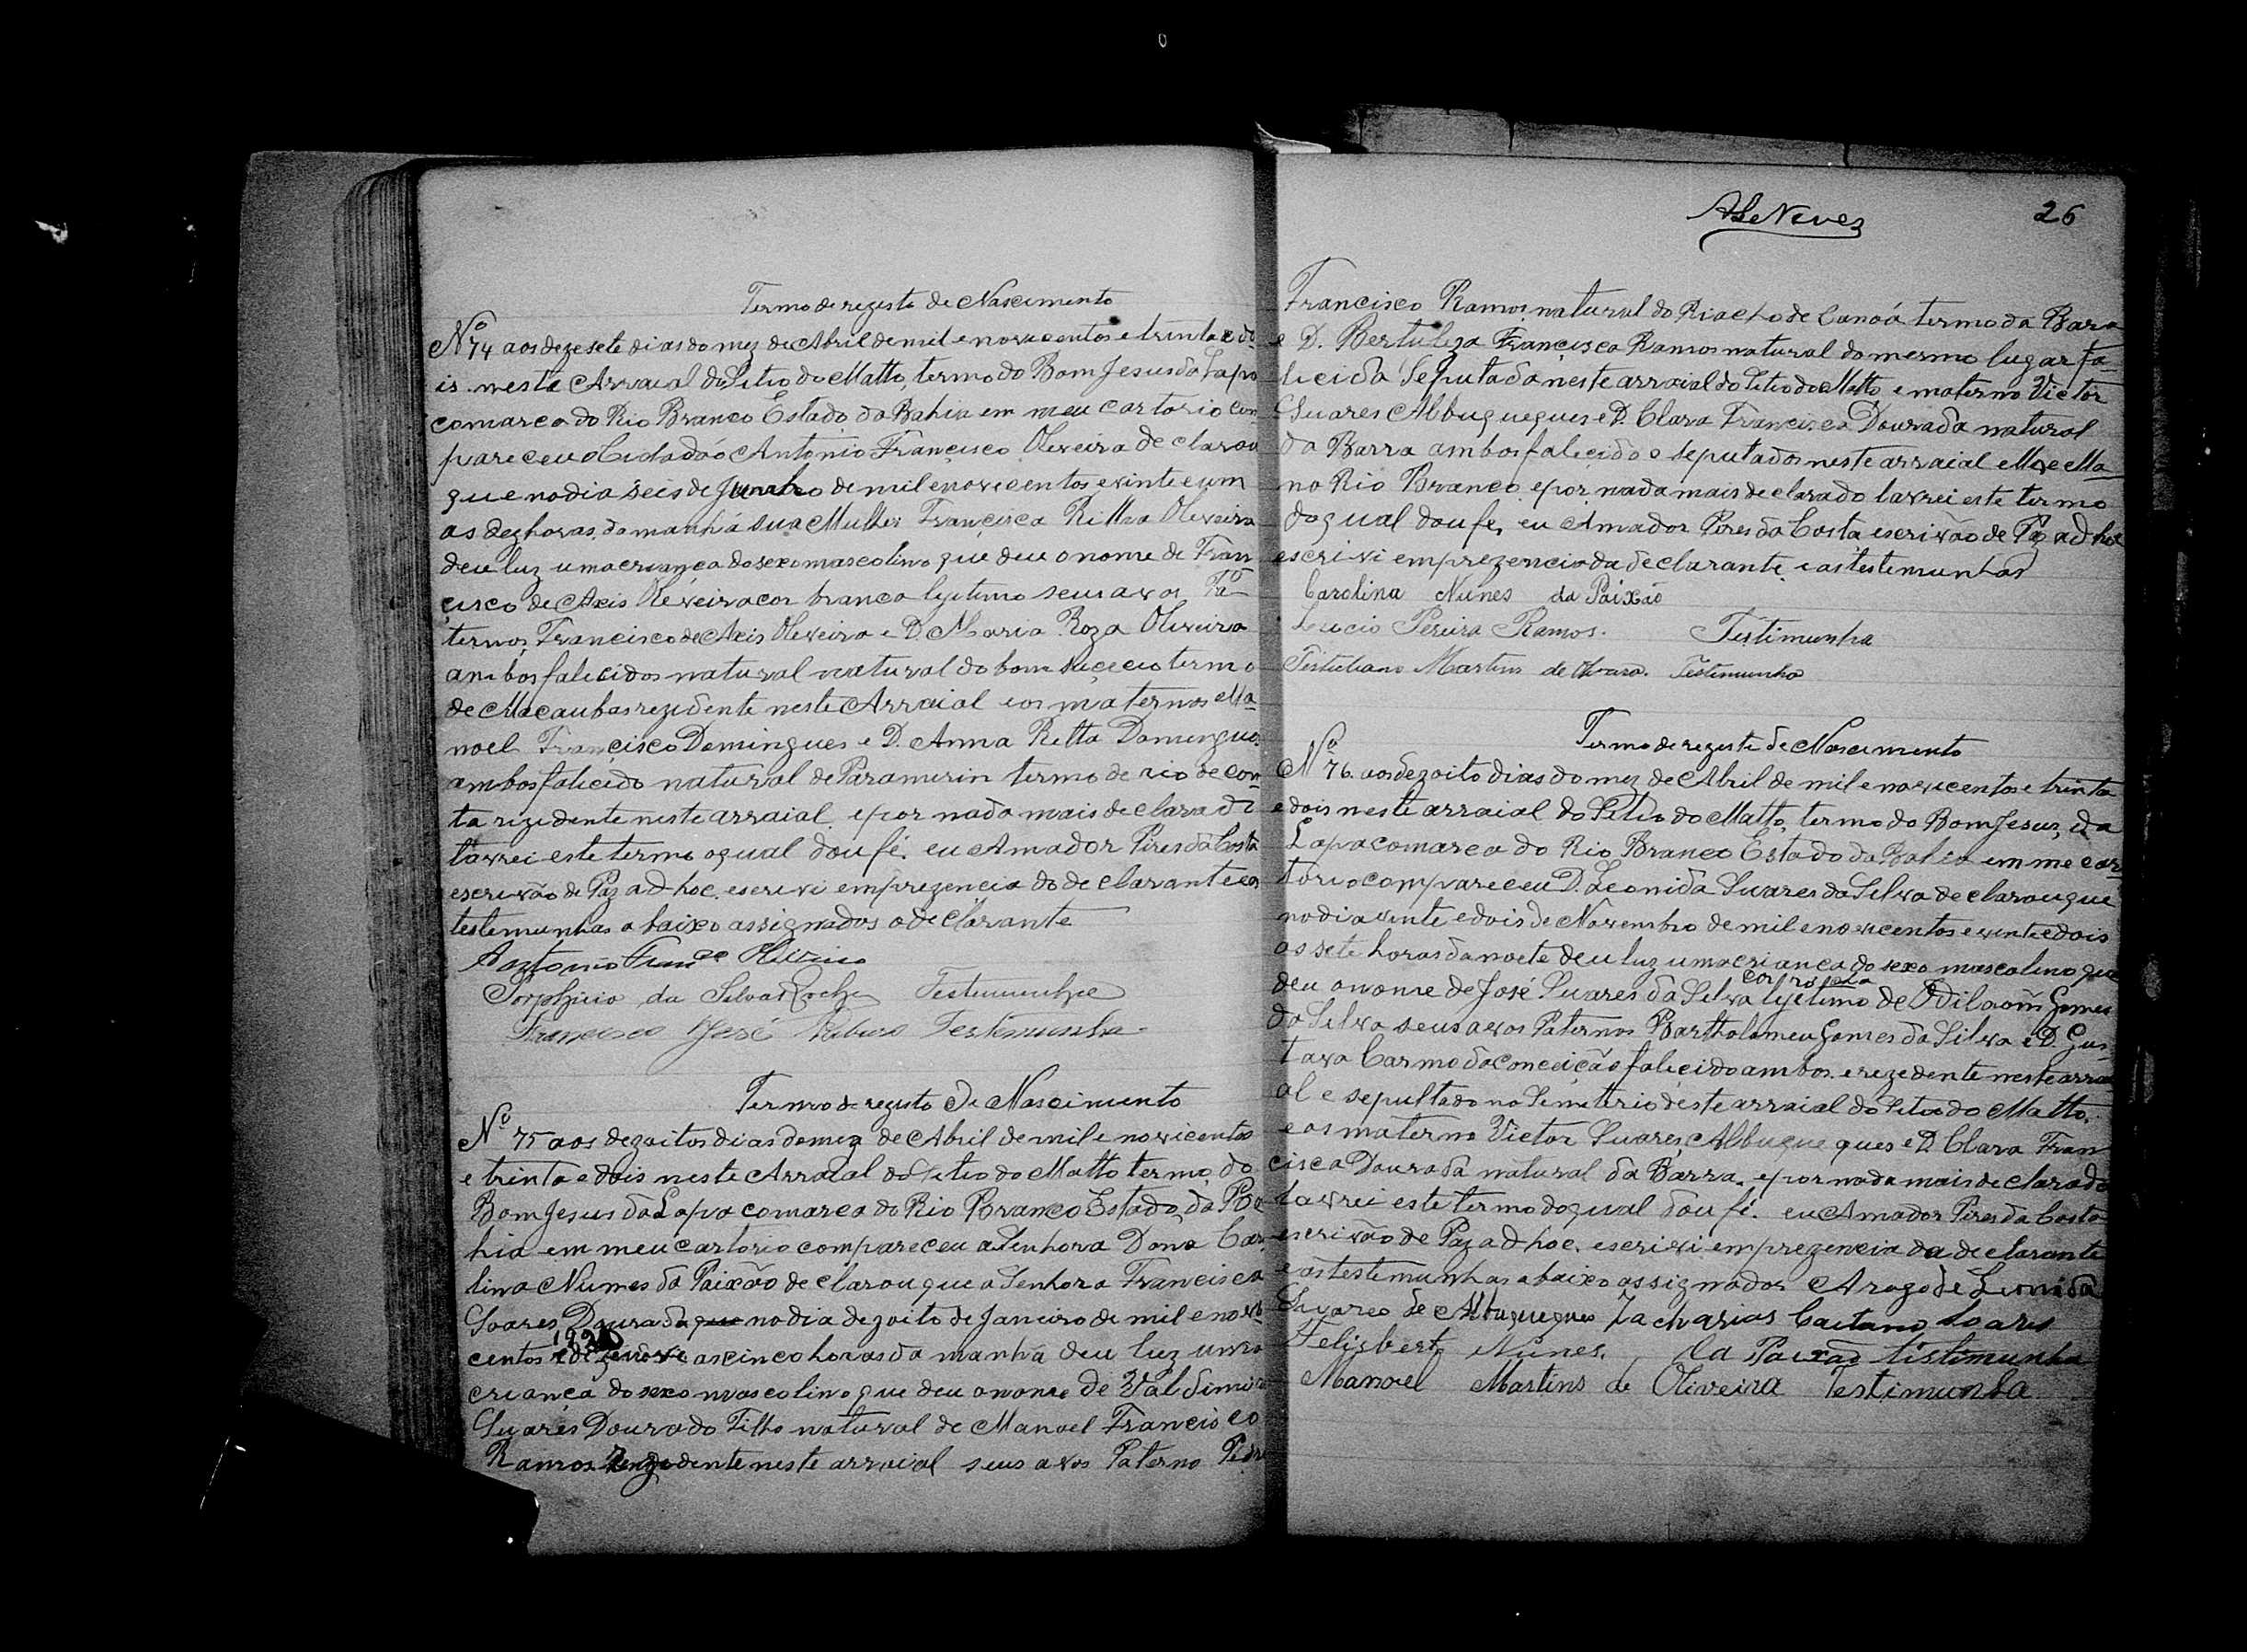 Termo de rezisto de Nascimento
Nº 74 aos dezesete dias do mez de Abril de mil e novecentos e trinta e do-
is nesta Arraial do Setio do Matto, termo do Bom Jesus da Lapa
comarca do Rio Branco Estado da Bahia em meu cartorio com-
pareceu o Cidadão Antonio Francisco Oliveira de clarou
que no dia seis de Junho de mil enovecentos evinte eum
as dez horas da manhã sua Mulher Francisca Ritta Oliveira
deu luz uma criança do sexo mascolino que deu o nome de Fran
cisco de Acis Oliveira cor branca lejetimo seus avos Pa-
ternos, Francisco de Acis Oliveira e D. Maria Roza Oliveira
ambos falicidos natural natural do bom suceço termo
de Macaubas rezidente neste Arraial eos maternos Ma
noel Francisco Domingues e D. Anna Retta Domingues
ambos falicido natural de Paramerin termo de rio de con-
ta rezidente neste arraial e por nada mais de clarado
lavrei este termo oqual dou fé. eu Amador Pires da Costa
escrivão de Paz ad hoc. escrivi em prezencia do de clarante eos
testemunhas a baixo assignados o de clarante
Antonio Franco Oliveira
Porphirio da Silva Rocha Testemunha
Francisco José Ribeiro Testimunha
Termo de rezisto de Nascimento
Nº 75 aos dezoitos dias do mez de Abril de mil e novicentos
e trinta e dois neste Arraial do Setio do Matto termo, do
Bom Jesus da Lapa comarca do Rio Branco Estado, da Ba
hia em meu cartorio compareceu a Senhora Dona Car
lina Nunes da Paixão de clarou que a Senhora Francisca
Soares Dourada que no dia dezoito de Janeiro de mil e nove
centos e dezenove as cinco horas da manhã deu luz uma
criança do sexo mascolino que deu o nome de Valdimiro
Suares Dourado Filho natural de Manoel Francisco
Ramos Rezedente neste arraial seus avos Paterno Pedro
A de Neves 26
Francisco Ramos natural do Riacho de Canoá termo da Barra
e D. Bertuleza Francisca Ramos natural do mesmo lugar fa-
licida Seputada neste arraial do Setio do Matto e materno Victor
Suares Albuqueques e D. Clara Francisca Dourada natural
da Barra ambos falicido e seputados neste arraial
no Rio Branco e por nada mais de clarado lavrei este termo
do qual dou fe, eu Amador Pires da Costa escrivão de Paz ad hoc
escrivi em prezencia da declarante eas testemunhas
Carolina Nunes da Paixão
Lucio Pereira Ramos. Testimunha
Martins de Testimunha
Termo de rezisto de Nascimento
Nº 76. aos dezoito dias do mez de Abril de mil e novecentos e trinta
e dois neste arraial do Setio do Matto, termo do Bom Jesus, da
Lapa comarca do Rio Branco Estado da Bahia em me car
torio compareceu D. Leonida Suares da Silva de clarou que
no dia vinte e dois de Novembro de mil e novecentos e vinte e dois
as sete horas da noete deu luz uma criança do sexo mascolino que
deu o nome de José Suares da Silva lejetimo de Gomes
da Silva seus avos Paternos Bartholomeu Gomes da Silva e D. Gus-
tava Carmo da Conceição falicido ambos e rezedente neste arra
al e sepultado no Semeterio deste arraial do Setio do Matto.
e os materno Victor Suares, Albuqueques e D. Clara Fran
cisca Dourada natural da Barra. e por nada mais de clarado
lavrei este termo do qual dou fé. eu Amador Pires da Costa
escrivão de Paz ad hoc. escrivi em prezencia da declarante
e as testemunhas abaixo assignados Arogo de Leonida
Suares de Albuqueques Zacharias Caetano Soares
Felisberto Nunes. da Paixão testimunha
Manoel Martins de Oliveira Testimunha